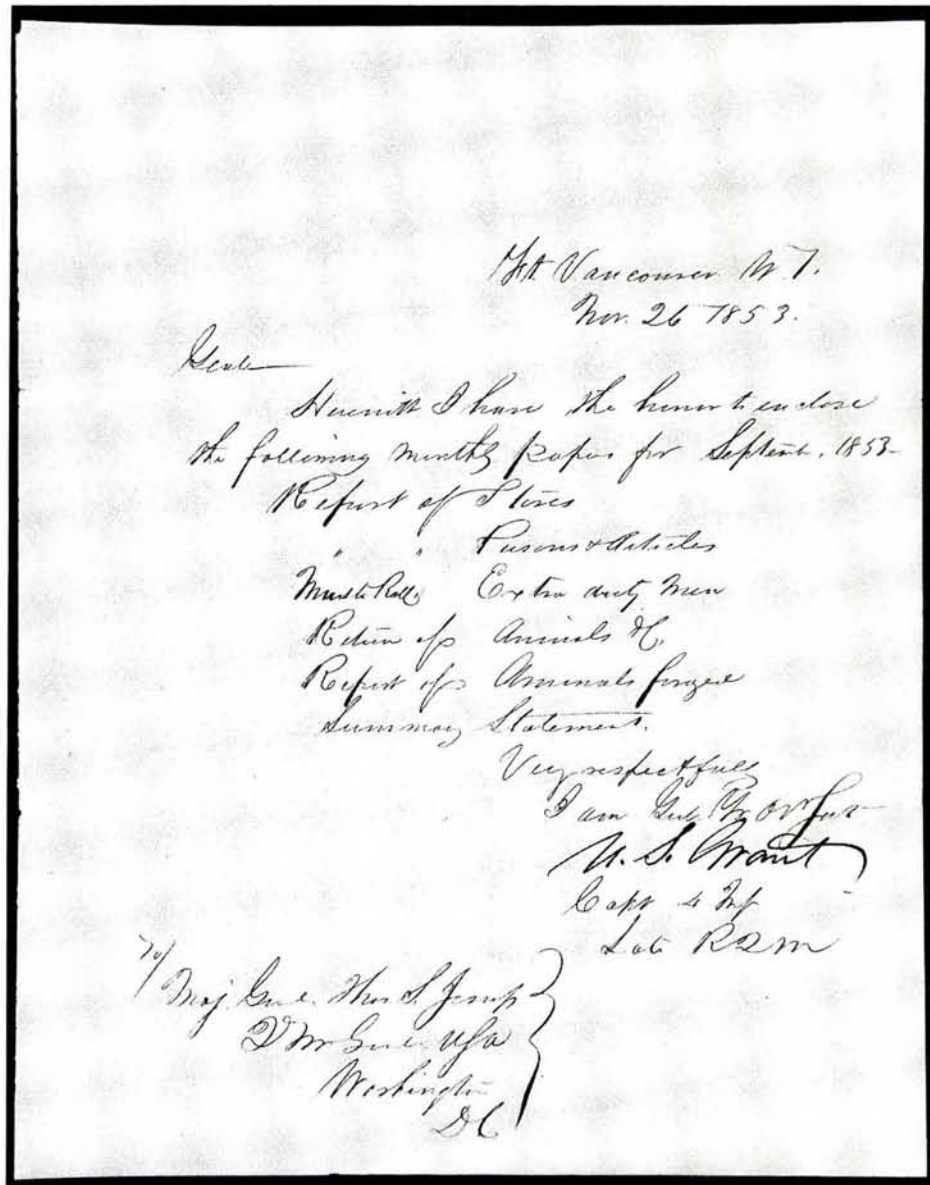 Ft. Vancouver W. T.
Nov. 26 1853.
Genl.
Herewith I have the honor to enclose
the following monthly papers for September, 1853
Report of Stores
" " Persons & Articles
Muster Rolls Extra duty Men
Return of Animals &c,
Report of Animals foraged
Summary Statement.
Very respectfully
I am Genl. Yr. Obt. Svt.
U. S. Grant
Capt 4 Inf
Late RQM
To/
Maj. Genl. Thos. S. Jesup
QMr Genl. USA
Washington
DC